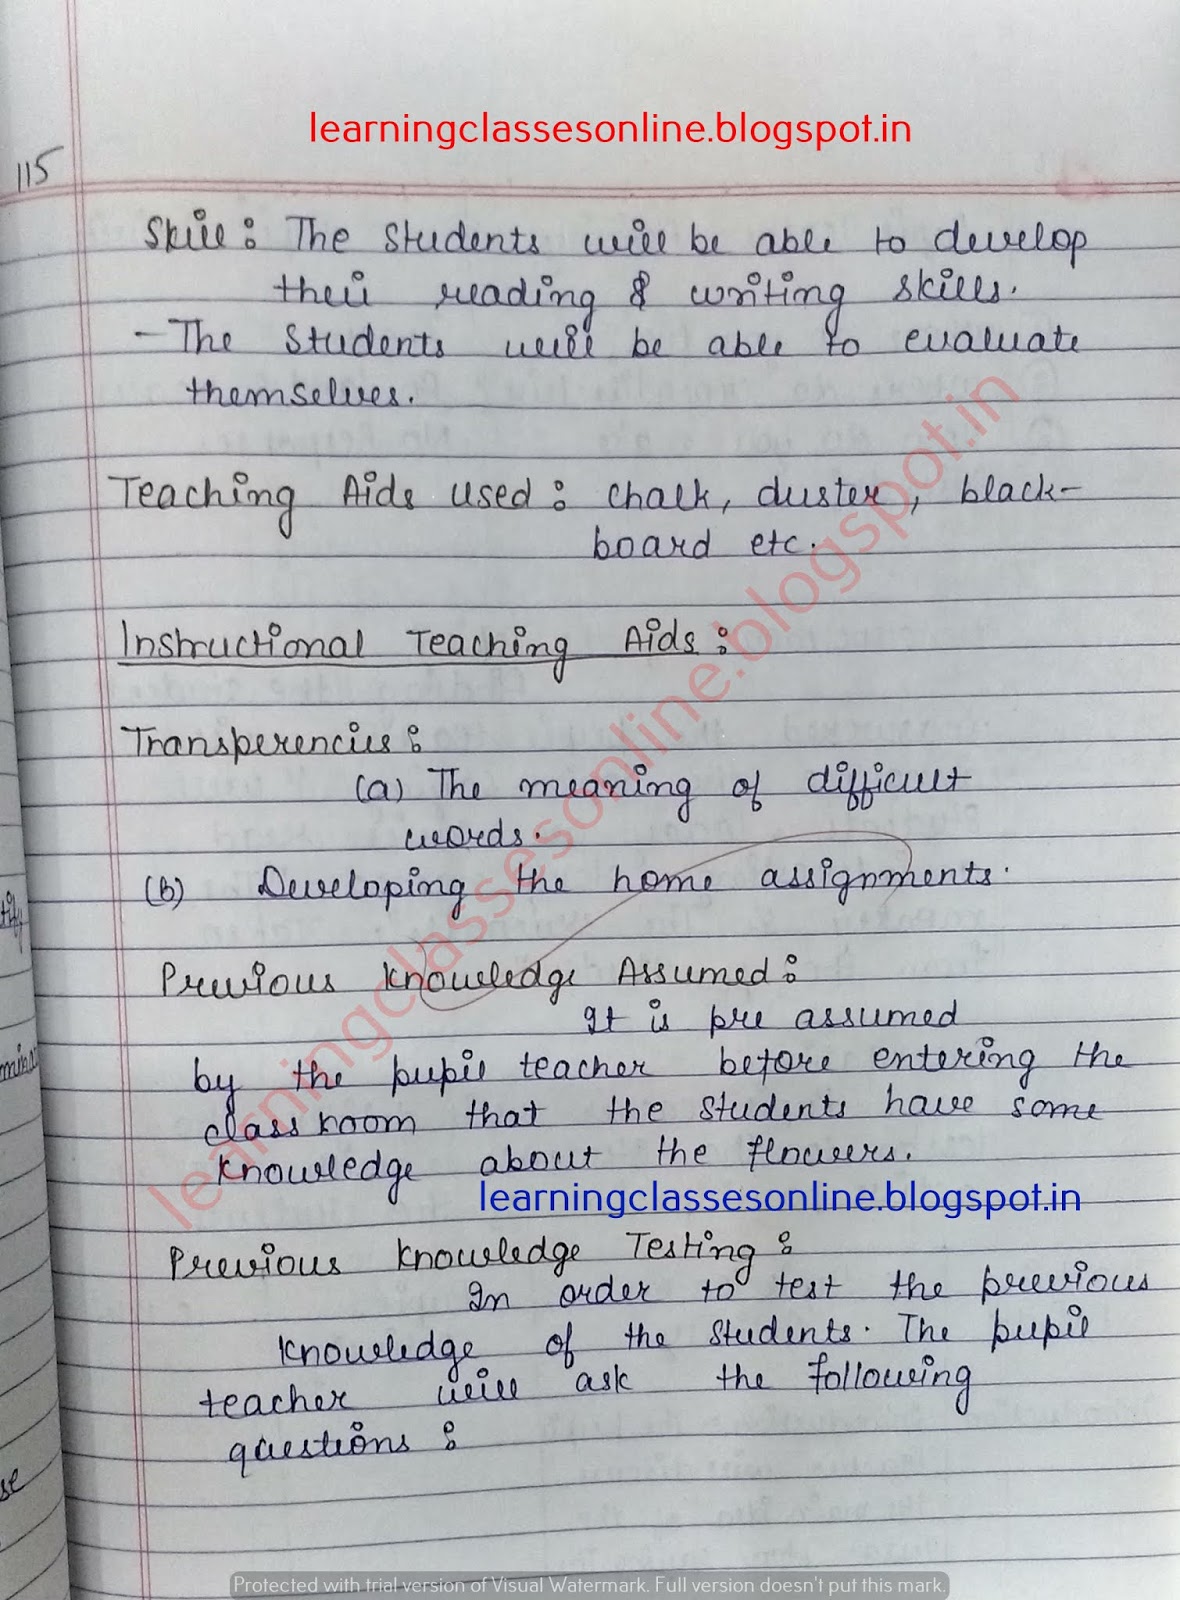 learningclassesonline.blogspot.in
115
Skill: The students will be able to develop
their reading & writing skills.
- The students will be able to evaluate
themselves.
Teaching Aids used: chalk, duster, black-
board etc.
Instructional Teaching Aids:
Transperencies:
(a) The meaning of difficult
words.
(b) Developing the home assignments.
Previous Knowledge Assumed:
It is pre assumed
by the pupil teacher before entering the
class room that the students have some
knowledge about the flowers.
learningclassesonline.blogspot.in
Previous Knowledge Testing:
In order to test the previous
knowledge of the students. The pupil
teacher will ask the following
questions:
learningclassesonline.blogspot.in
Protected with trial version of Visual Watermark. Full version doesn't put this mark.